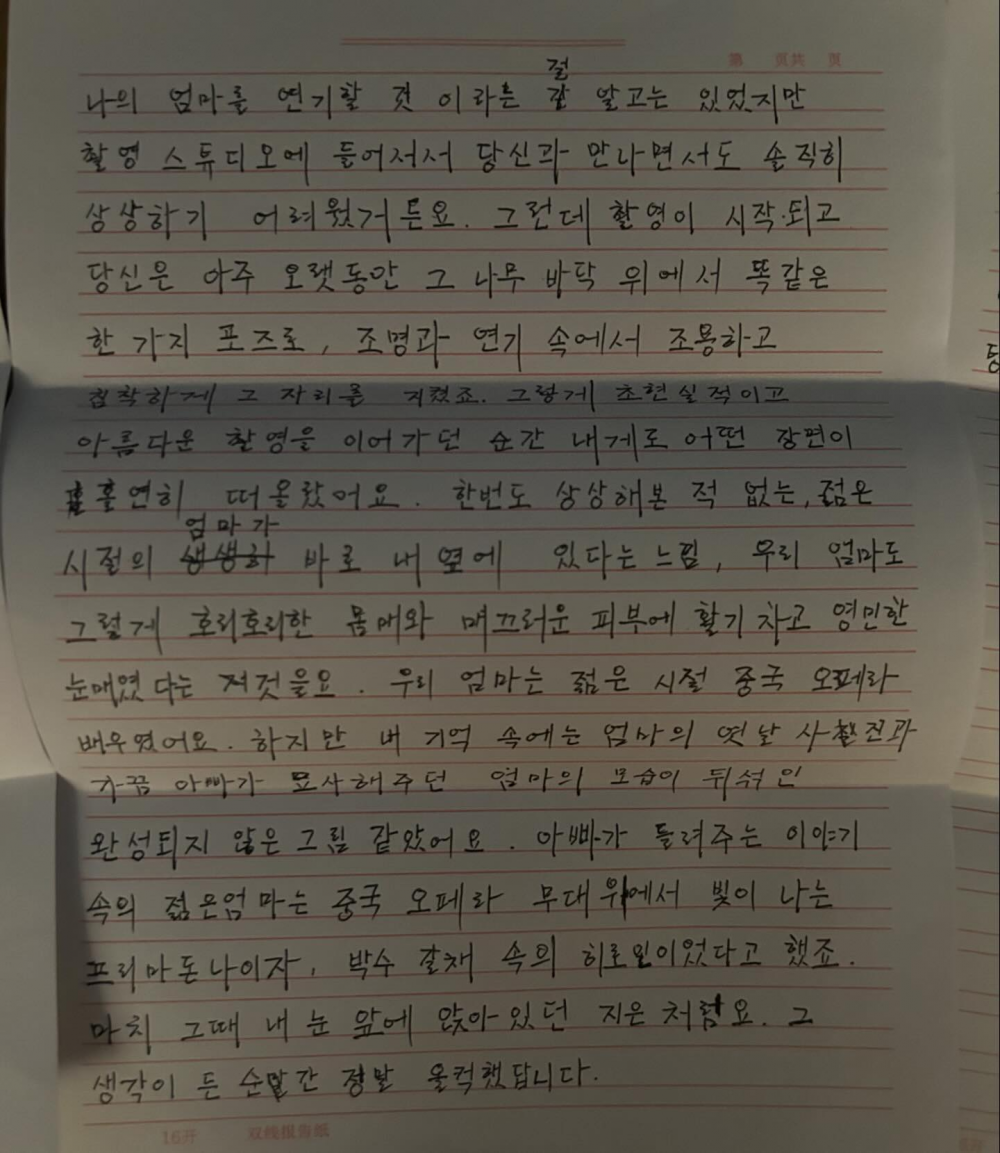 第 页共 页
절
나의 엄마를 연기할 것 이라는 잘 알고는 있었지만
촬영 스튜디오에 들어서서 당신과 만나면서도 솔직히
상상하기 어려웠거든요. 그런데 촬영이 시작되고
당신은 아주 오랫동안 그 나무 바닥 위에서 똑같은
한 가지 포즈로, 조명과 연기 속에서 조용하고
침착하게 그 자리를 지켰죠. 그렇게 초현실적이고
아름다운 촬영을 이어가던 순간 내게로 어떤 장면이
홀연히 떠올랐어요. 한번도 상상해본 적 없는, 젊은
엄마가
시절의 생생히 바로 내 옆에 있다는 느낌, 우리 엄마도
그렇게 호리호리한 몸매와 매끄러운 피부에 활기차고 영민한
눈매였다는 져것을요. 우리 엄마는 젊은 시절 중국 오페라
배우였어요. 하지만 내 기억 속에는 엄마의 옛날 사진과
가끔 아빠가 묘사해주던 엄마의 모습이 뒤섞인
완성되지 않은 그림 같았어요. 아빠가 들려주는 이야기
속의 젊은엄마는 중국 오페라 무대위에서 빛이 나는
프리마돈나이자, 박수 갈채 속의 히로인이었다고 했죠.
마치 그때 내 눈 앞에 앉아있던 지은처럼요. 그
생각이 든 순간 정말 울컥했답니다.
16开 双线报告纸